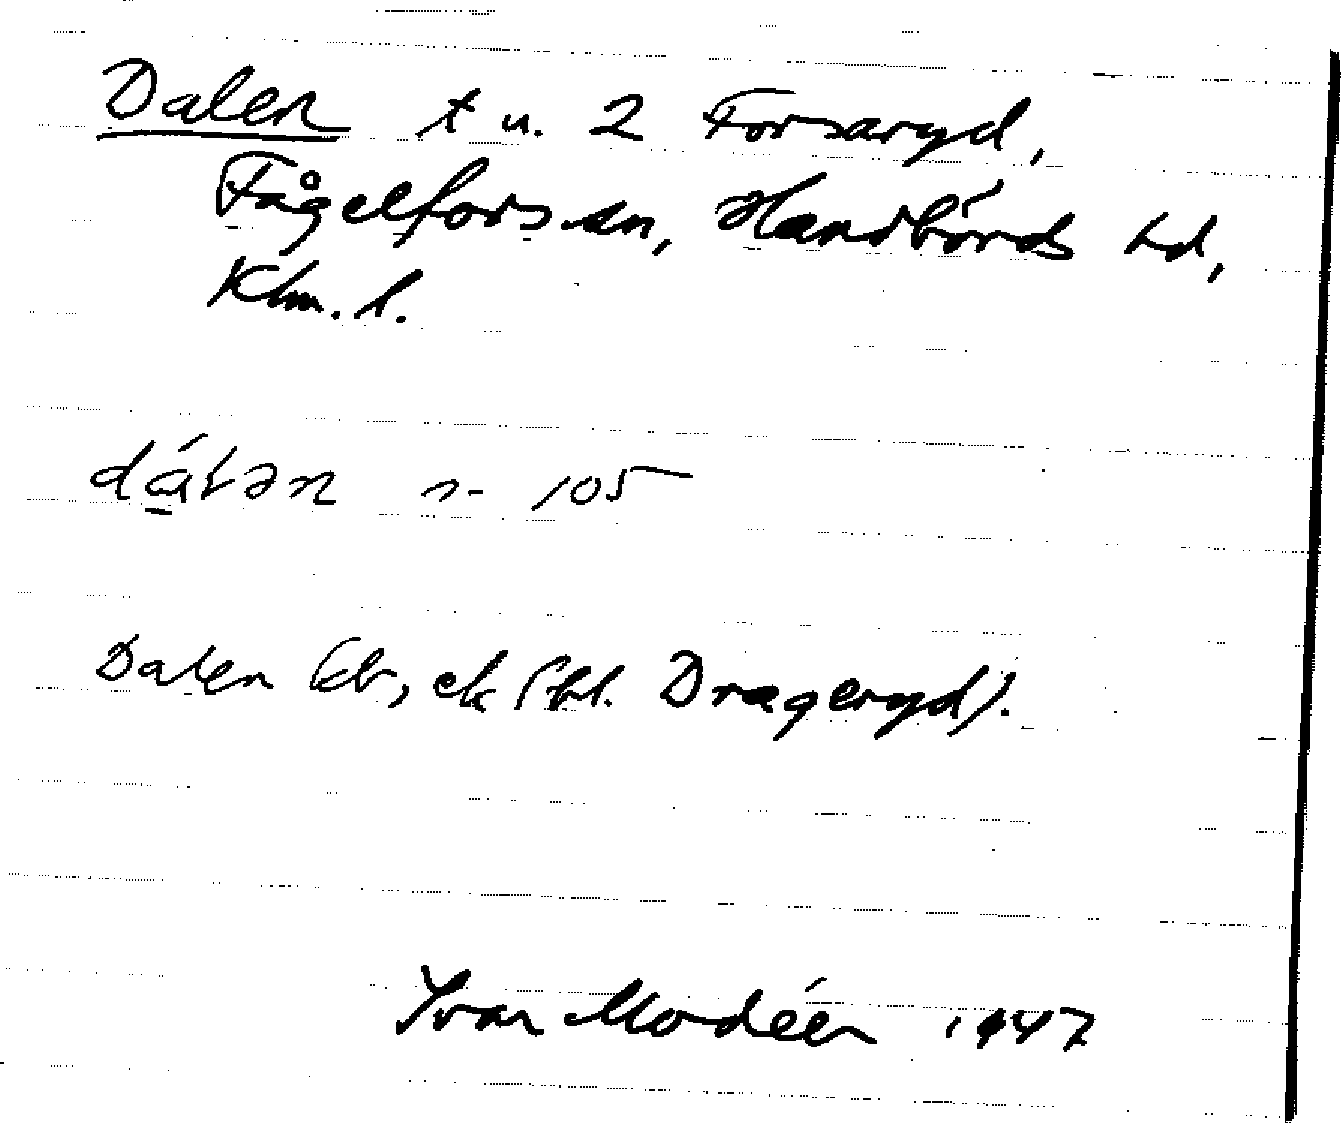 Dalen t u. 2 Forsaryd,
Fågelfors sn, Handbörds hd,
Klm. l.
dálən n- 105
Dalen (eb, ek (bl. Drageryd).
Ivar Modéer 1947